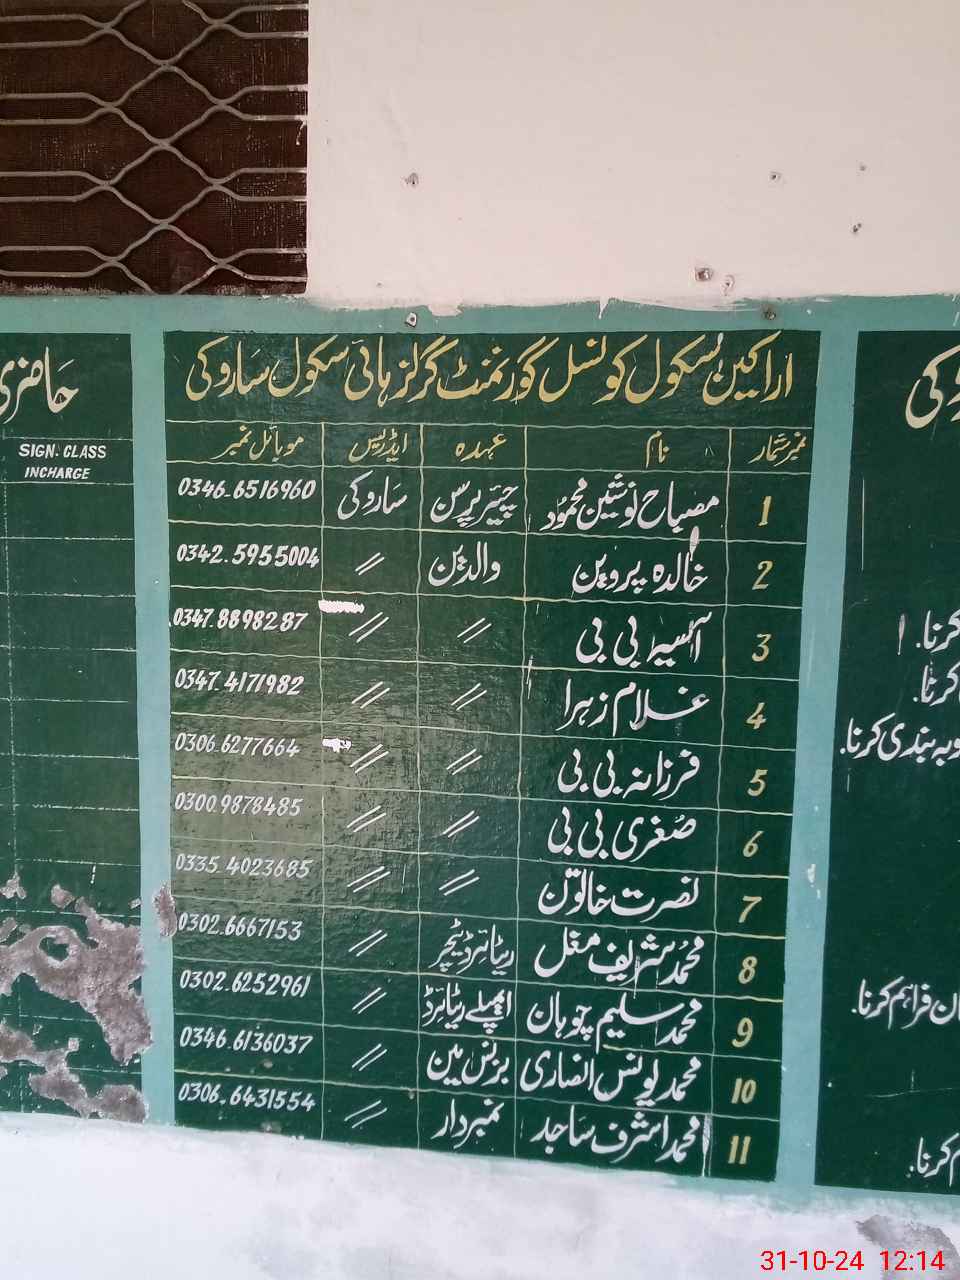 اراکین سکول کونسل گورنمنٹ گرلز ہائی سکول ساروکی
نمبر شمار نام عہدہ ایڈریس موبائل نمبر
1 مصباح نوشین محمود چیئر پرسن ساروکی 0346.6516960
2 خالدہ پروین والدین 〃 0342.5955004
3 آسیہ بی بی 〃 〃 0347.8898287
4 غلام زہرا 〃 〃 0347.4171982
5 فرزانہ بی بی 〃 〃 0306.6277664
6 صغری بی بی 〃 〃 0300.9878485
7 نصرت خاتون 〃 〃 0335.4023685
8 محمد شریف مغل ریٹائرڈ ٹیچر 〃 0302.6667153
9 محمد سلیم چوہان ایمپلے ریٹائرڈ 〃 0302.6252961
10 محمد یونس انصاری بزنس مین 〃 0346.6136037
11 محمد اشرف ساجد نمبردار 〃 0306.6431554
حاضری
SIGN. CLASS
INCHARGE
کی
کرنا.
کرنا.
بندی کرنا.
فراہم کرنا.
کرنا.
31-10-24 12:14